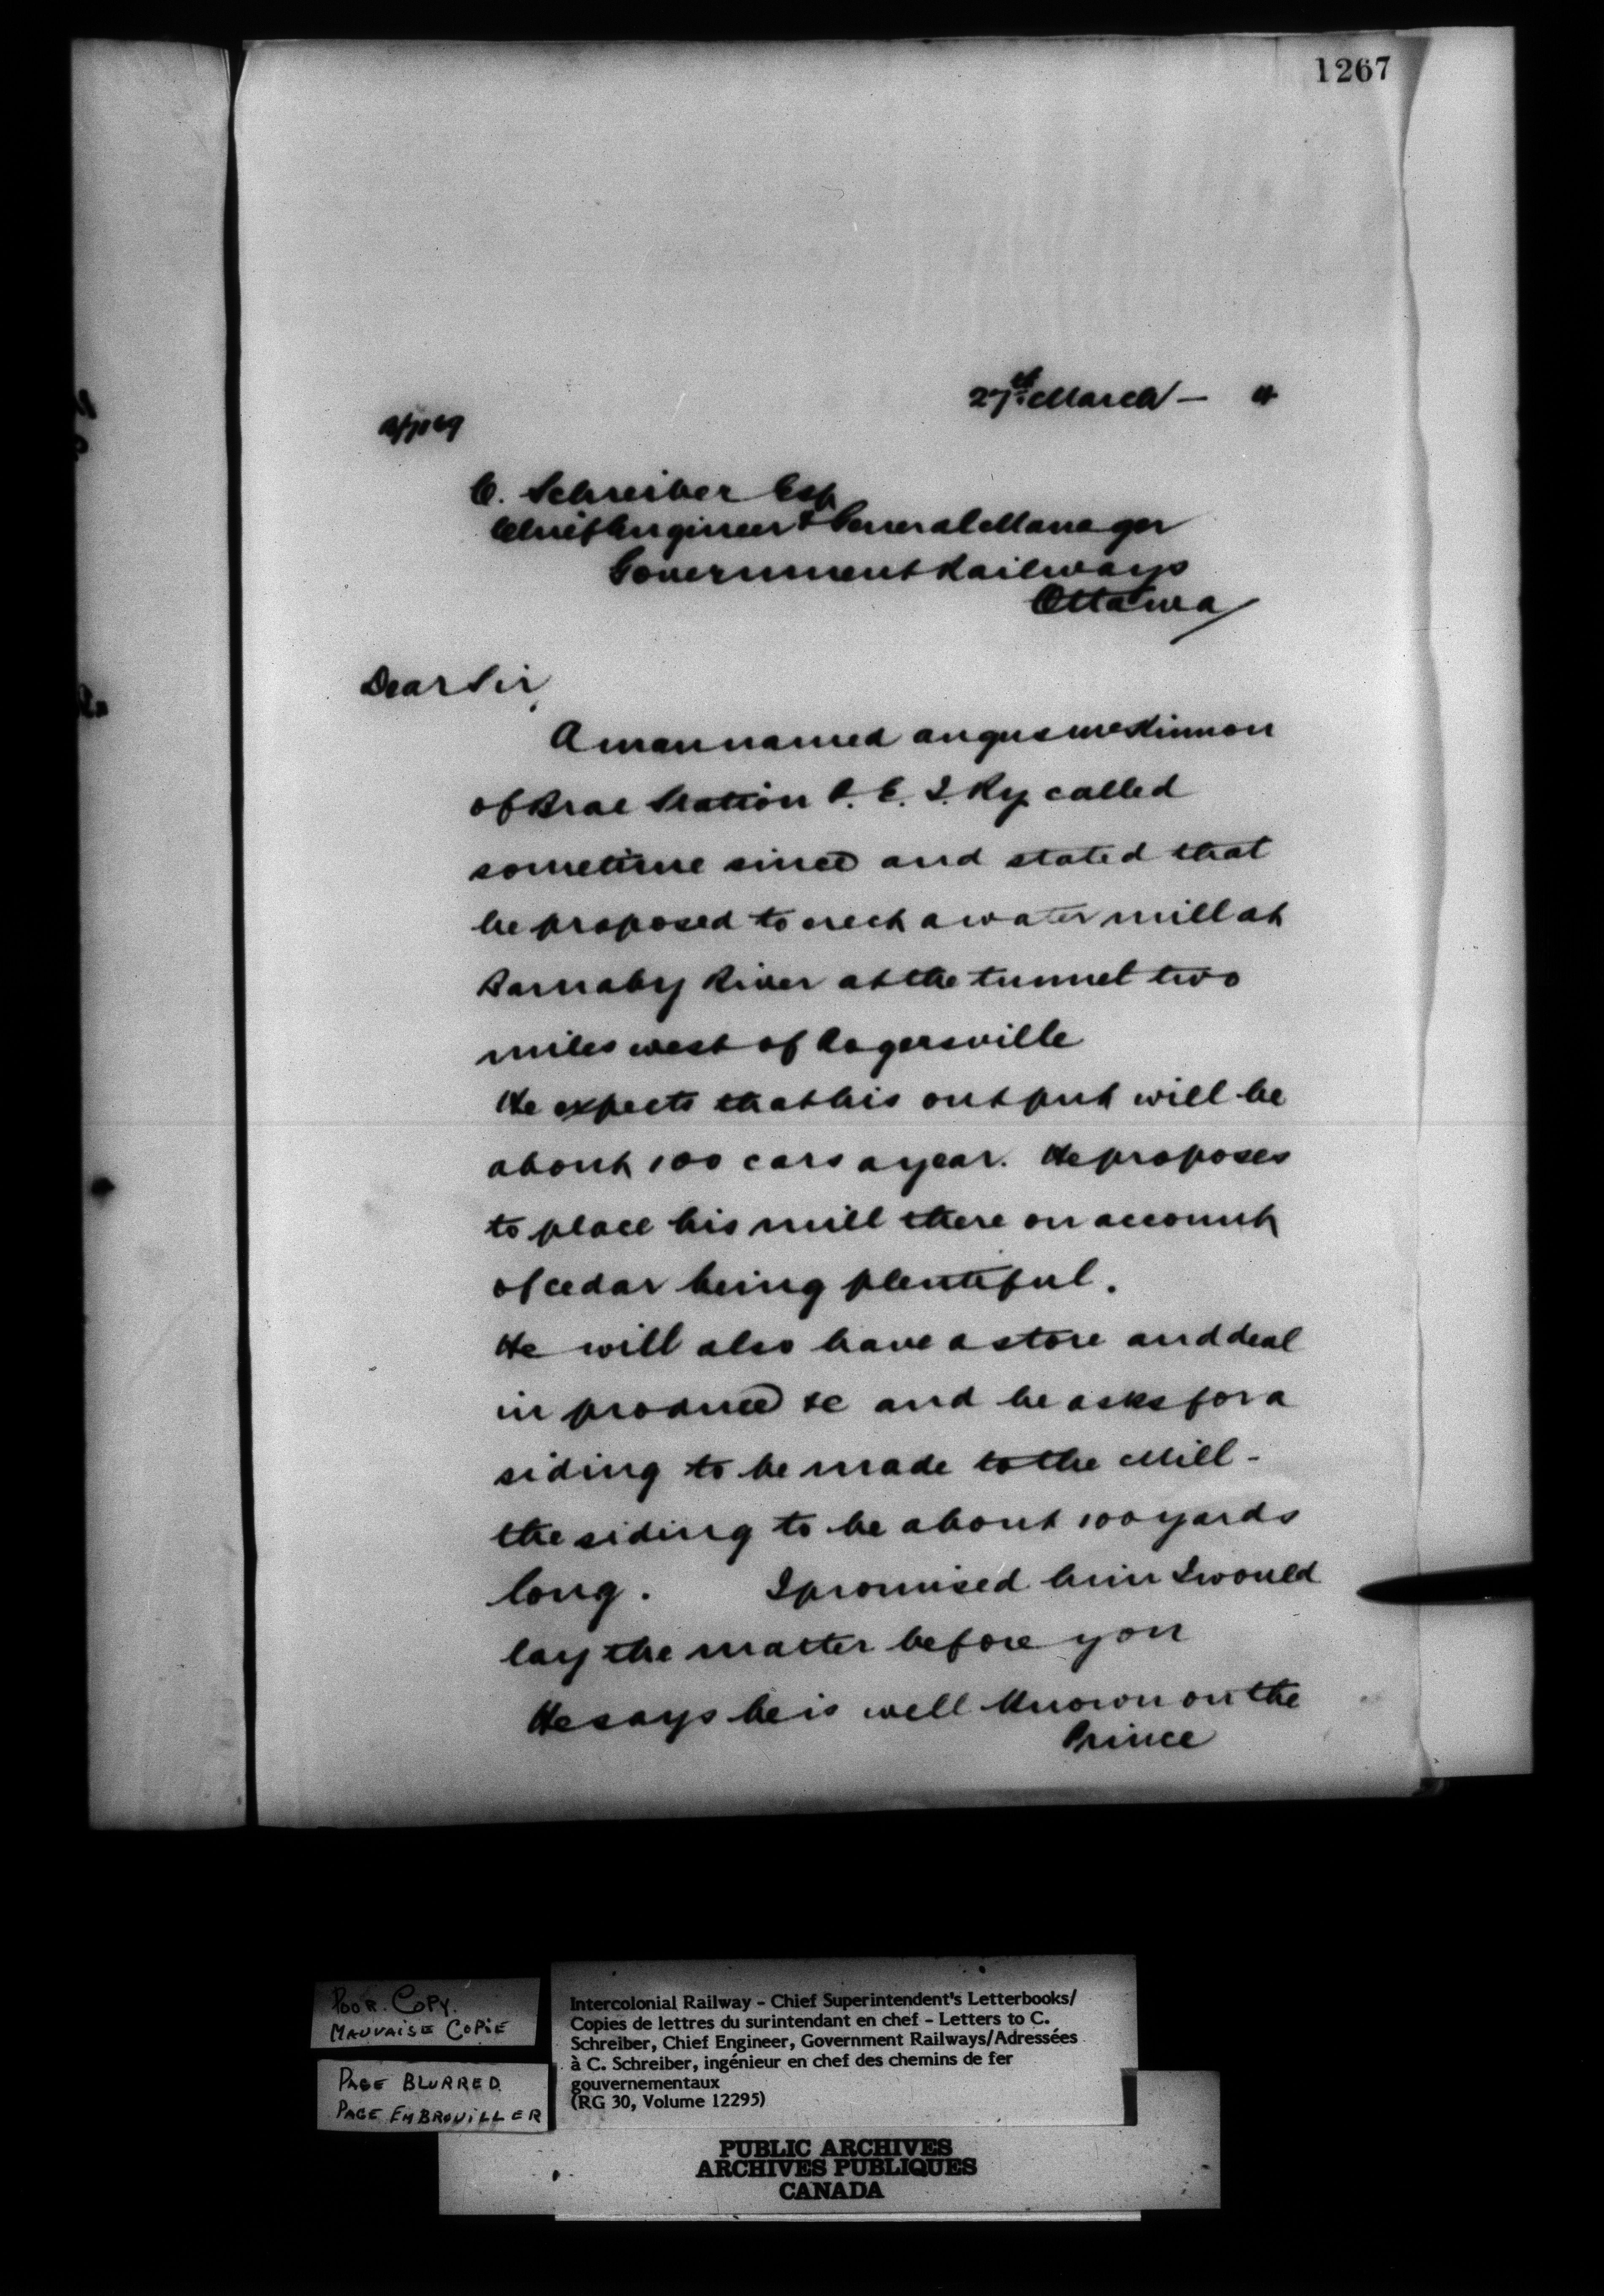 1267
27th March — 4
C. Schreiber Esq
Chief Engineer & General Manager
Government Railways
Ottawa
Dear Sir,
A man named Angus McKinnon
of Brae Station P. E. I. Ry. called
sometime since and stated that
he proposed to erect a water mill at
Barnaby River at the tunnel two
miles west of Rogersville
He expects that his output will be
about 100 cars a year. He proposes
to place his mill there on account
of cedar being plentiful.
He will also have a store and deal
in produce &c and he asks for a
siding to be made to the Mill -
the siding to be about 100 yards
long. I promised him I would
lay the matter before you
He says he is well known on the
Prince
POOR. COPY.
MAUVAISE COPIE
PAGE BLURRED.
PAGE EMBROUILLER
Intercolonial Railway - Chief Superintendent's Letterbooks/
Copies de lettres du surintendant en chef - Letters to C.
Schreiber, Chief Engineer, Government Railways/Adressées
à C. Schreiber, ingénieur en chef des chemins de fer
gouvernementaux
(RG 30, Volume 12295)
PUBLIC ARCHIVES
ARCHIVES PUBLIQUES
CANADA